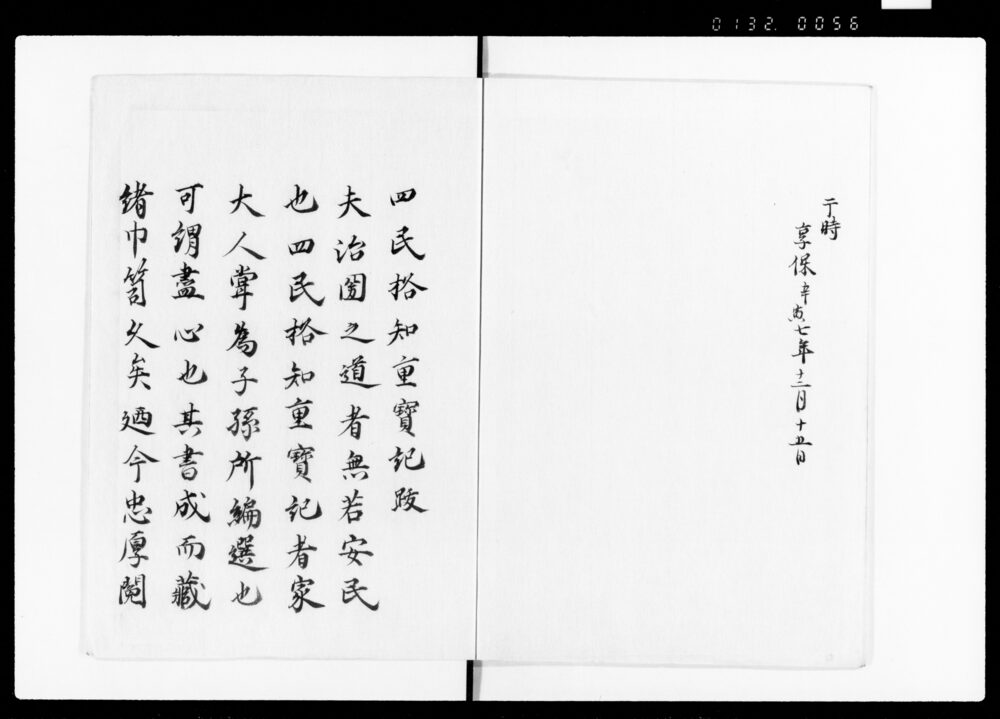 于時
享保七年十二月十五日
四民格知重寶記跋
夫治圀之道者無若安民
也四民格知重寶記者家
大人甞為子孫所編選也
可謂盡心也其書成而藏
緒巾笥久矣廼今忠厚閲
0132. 0056